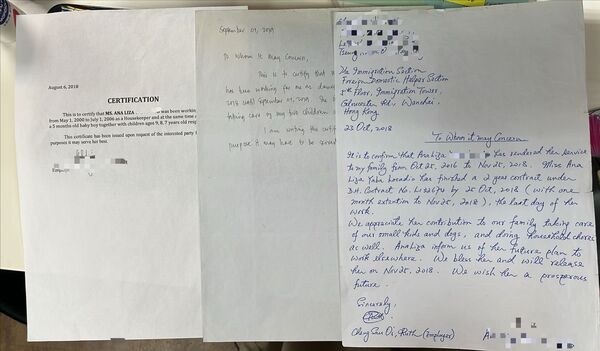 August 6, 2018
CERTIFICATION
This is to certify that MS. ANA LIZA was been working
from May 1, 2000 to July 1, 2006 as a Housekeeper and at the same time
a 5 months old baby boy together with children aged 9, 8, 7 years old
This certificate has been issued upon request of the interested party
purposes it may serve her best.
September 01, 2019
To Whom It May Concern,
This is to certify that
has been working for me as
2018 until September 01, 2019. She
taking care of my children
I am writing the
purpose it may have to be
The Immigration Section
Foreign Domestic Helpers Section
Floor, Immigration Tower,
Gloucester Rd., Wanchai,
Hong Kong
23 Oct, 2018
To Whom it may Concern
It is to confirm that Analiza has rendered her service
to my family from Oct 25, 2016 to Nov 25, 2018. Miss Ana
Liza has finished a 2 year contract under
D.H. Contract No. by 25 Oct, 2018 (with one
month extention to Nov 25, 2018), the last day of her
work.
We appreciate her contribution to our family taking care
of our small kids and dogs, and doing household chores
as well. Analiza inform us of her future plan to
work elsewhere. We bless her and will release
her on Nov 25, 2018. We wish her a prosperous
future.
Sincerely,
Ruth (Employer)